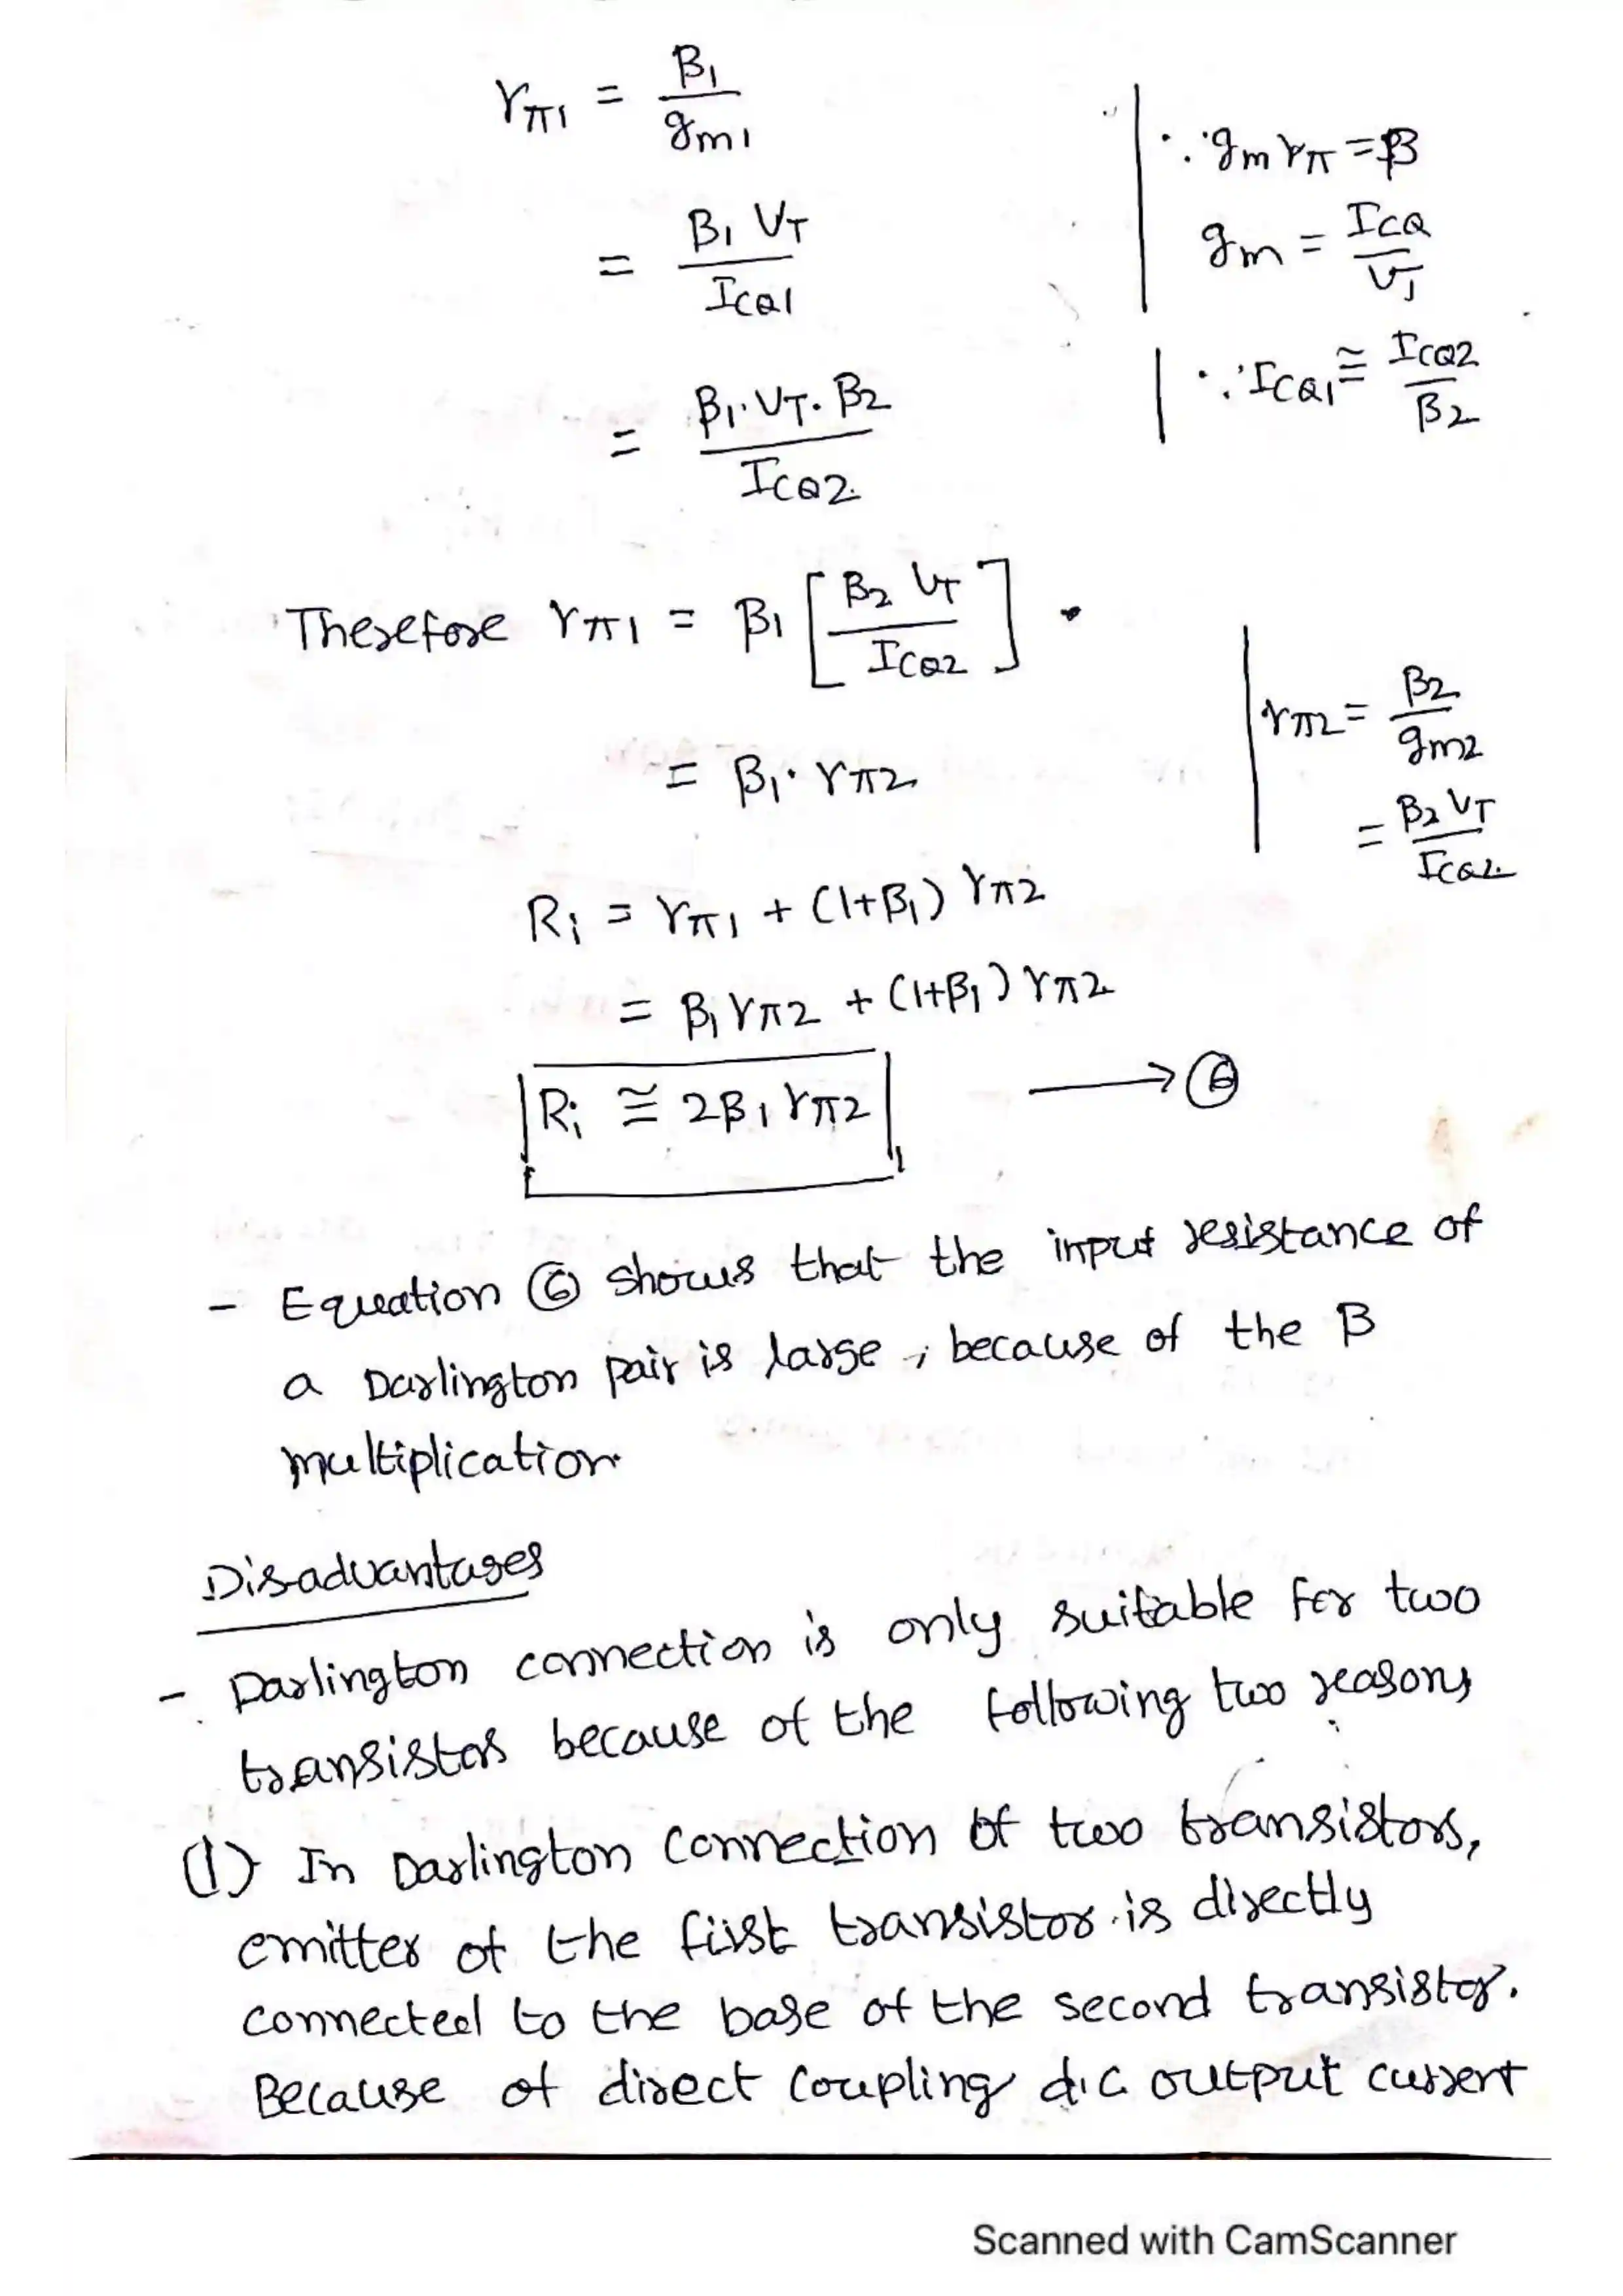 rπ1 = β1 / gm1
∵ gm rπ = β
= β1 VT / ICQ1
gm = ICQ / VT
= β1. VT. β2 / ICQ2.
∵ ICQ1 ≅ ICQ2 / β2
Therefore rπ1 = β1 [ β2 VT / ICQ2 ].
rπ2 = β2 / gm2
= β1. rπ2
= β2 VT / ICQ2.
Ri = rπ1 + (1+β1) rπ2
= β1 rπ2 + (1+β1) rπ2
Ri ≅ 2β1 rπ2 → ⑥
- Equation ⑥ shows that the input resistance of
a Darlington pair is large, because of the β
multiplication
Disadvantages
- Darlington connection is only suitable for two
transistors because of the following two reasons,
(1) In Darlington Connection of two transistors,
emitter of the first transistor is directly
connected to the base of the second transistor.
Because of direct coupling d.c. output current
Scanned with CamScanner